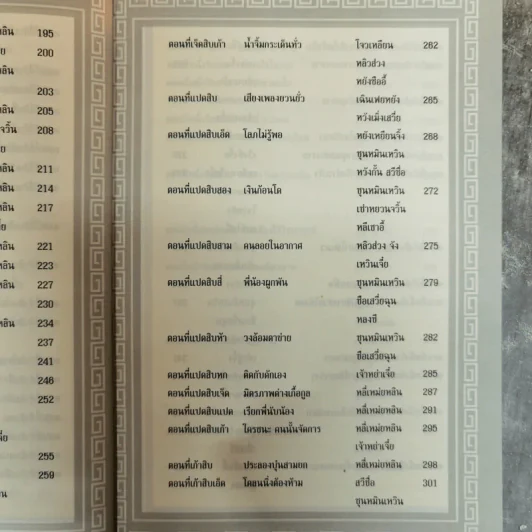 หลิน 195
200
203
205
208
หลิน 211
หลิน 214
หลิน 217
หลิน 221
หลิน 223
หลิน 227
230
หลิน 234
237
241
246
252
255
259
ตอนที่เจ็ดสิบเก้า น้ำจิ้มกระเด็นทั่ว โจวเหลียน 262
หลิวส่วง
หยังซืออี้
ตอนที่แปดสิบ เสียงเพลงยวนยั่ว เฉินเฟยหยัง 265
หวังเมิ่งเสวี่ย
ตอนที่แปดสิบเอ็ด โลภไม่รู้พอ หยังเหยียนจิ้ง 268
ซุนหมินเหวิน
หวังกั๋น สวีซือ
ตอนที่แปดสิบสอง เงินก้อนโต ซุนหมินเหวิน 272
เซ่าหยวนจวิ้น
หลีเซาอี้
ตอนที่แปดสิบสาม คนลอยในอากาศ หลิวส่วง จัง 275
เหวินเจี๋ย
ตอนที่แปดสิบสี่ พี่น้องผูกพัน ซุนหมินเหวิน 279
ซือเสวี่ยฉุน
หลงซี
ตอนที่แปดสิบห้า วงล้อมตาข่าย ซุนหมินเหวิน 282
ซือเสวี่ยฉุน
ตอนที่แปดสิบหก ติดกับดักเอง เจ้าหย่าเจี๋ย 285
ตอนที่แปดสิบเจ็ด มิตรภาพต่างเกื้อกูล หลี่เหม่ยหลิน 287
ตอนที่แปดสิบแปด เรียกพี่นับน้อง หลี่เหม่ยหลิน 291
ตอนที่แปดสิบเก้า ใครชนะ คนนั้นจัดการ หลี่เหม่ยหลิน 295
เจ้าหย่าเจี๋ย
ตอนที่เก้าสิบ ประลองปูนสามยก หลี่เหม่ยหลิน 298
ตอนที่เก้าสิบเอ็ด โดสนนิ่งต้องห้าม สวีซือ 301
ซุนหมินเหวิน